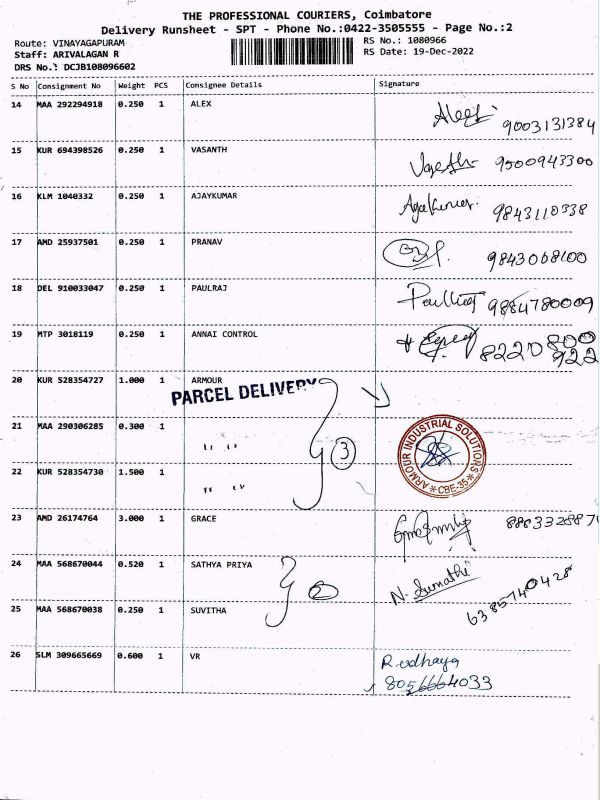 THE PROFESSIONAL COURIERS, Coimbatore
Delivery Runsheet - SPT - Phone No.:0422-3505555 - Page No.:2
Route: VINAYAGAPURAM
Staff: ARIVALAGAN R
DRS No.: DCJB108096602
RS No.: 1080966
RS Date: 19-Dec-2022
S No Consignment No Weight PCS Consignee Details Signature
14 MAA 292294918 0.250 1 ALEX Alex 9003131384
15 KUR 694398526 0.250 1 VASANTH 9500943300
16 KLM 1040332 0.250 1 AJAYKUMAR 9843110338
17 AMD 25937501 0.250 1 PRANAV 9843068100
18 DEL 910033047 0.250 1 PAULRAJ 9884780009
19 MTP 3018119 0.250 1 ANNAI CONTROL 8220 800
922
20 KUR 528354727 1.000 1 ARMOUR
PARCEL DELIVERY
21 MAA 290306285 0.300 1
" "
3
ARMOUR INDUSTRIAL SOLUTIONS
* CBE-35 *
22 KUR 528354730 1.500 1
" "
23 AMD 26174764 3.000 1 GRACE
24 MAA 568670044 0.520 1 SATHYA PRIYA 2 N. Sumathi
6385740428
25 MAA 568670038 0.250 1 SUVITHA
26 SLM 309665669 0.600 1 VR R. udhaya
8056664033